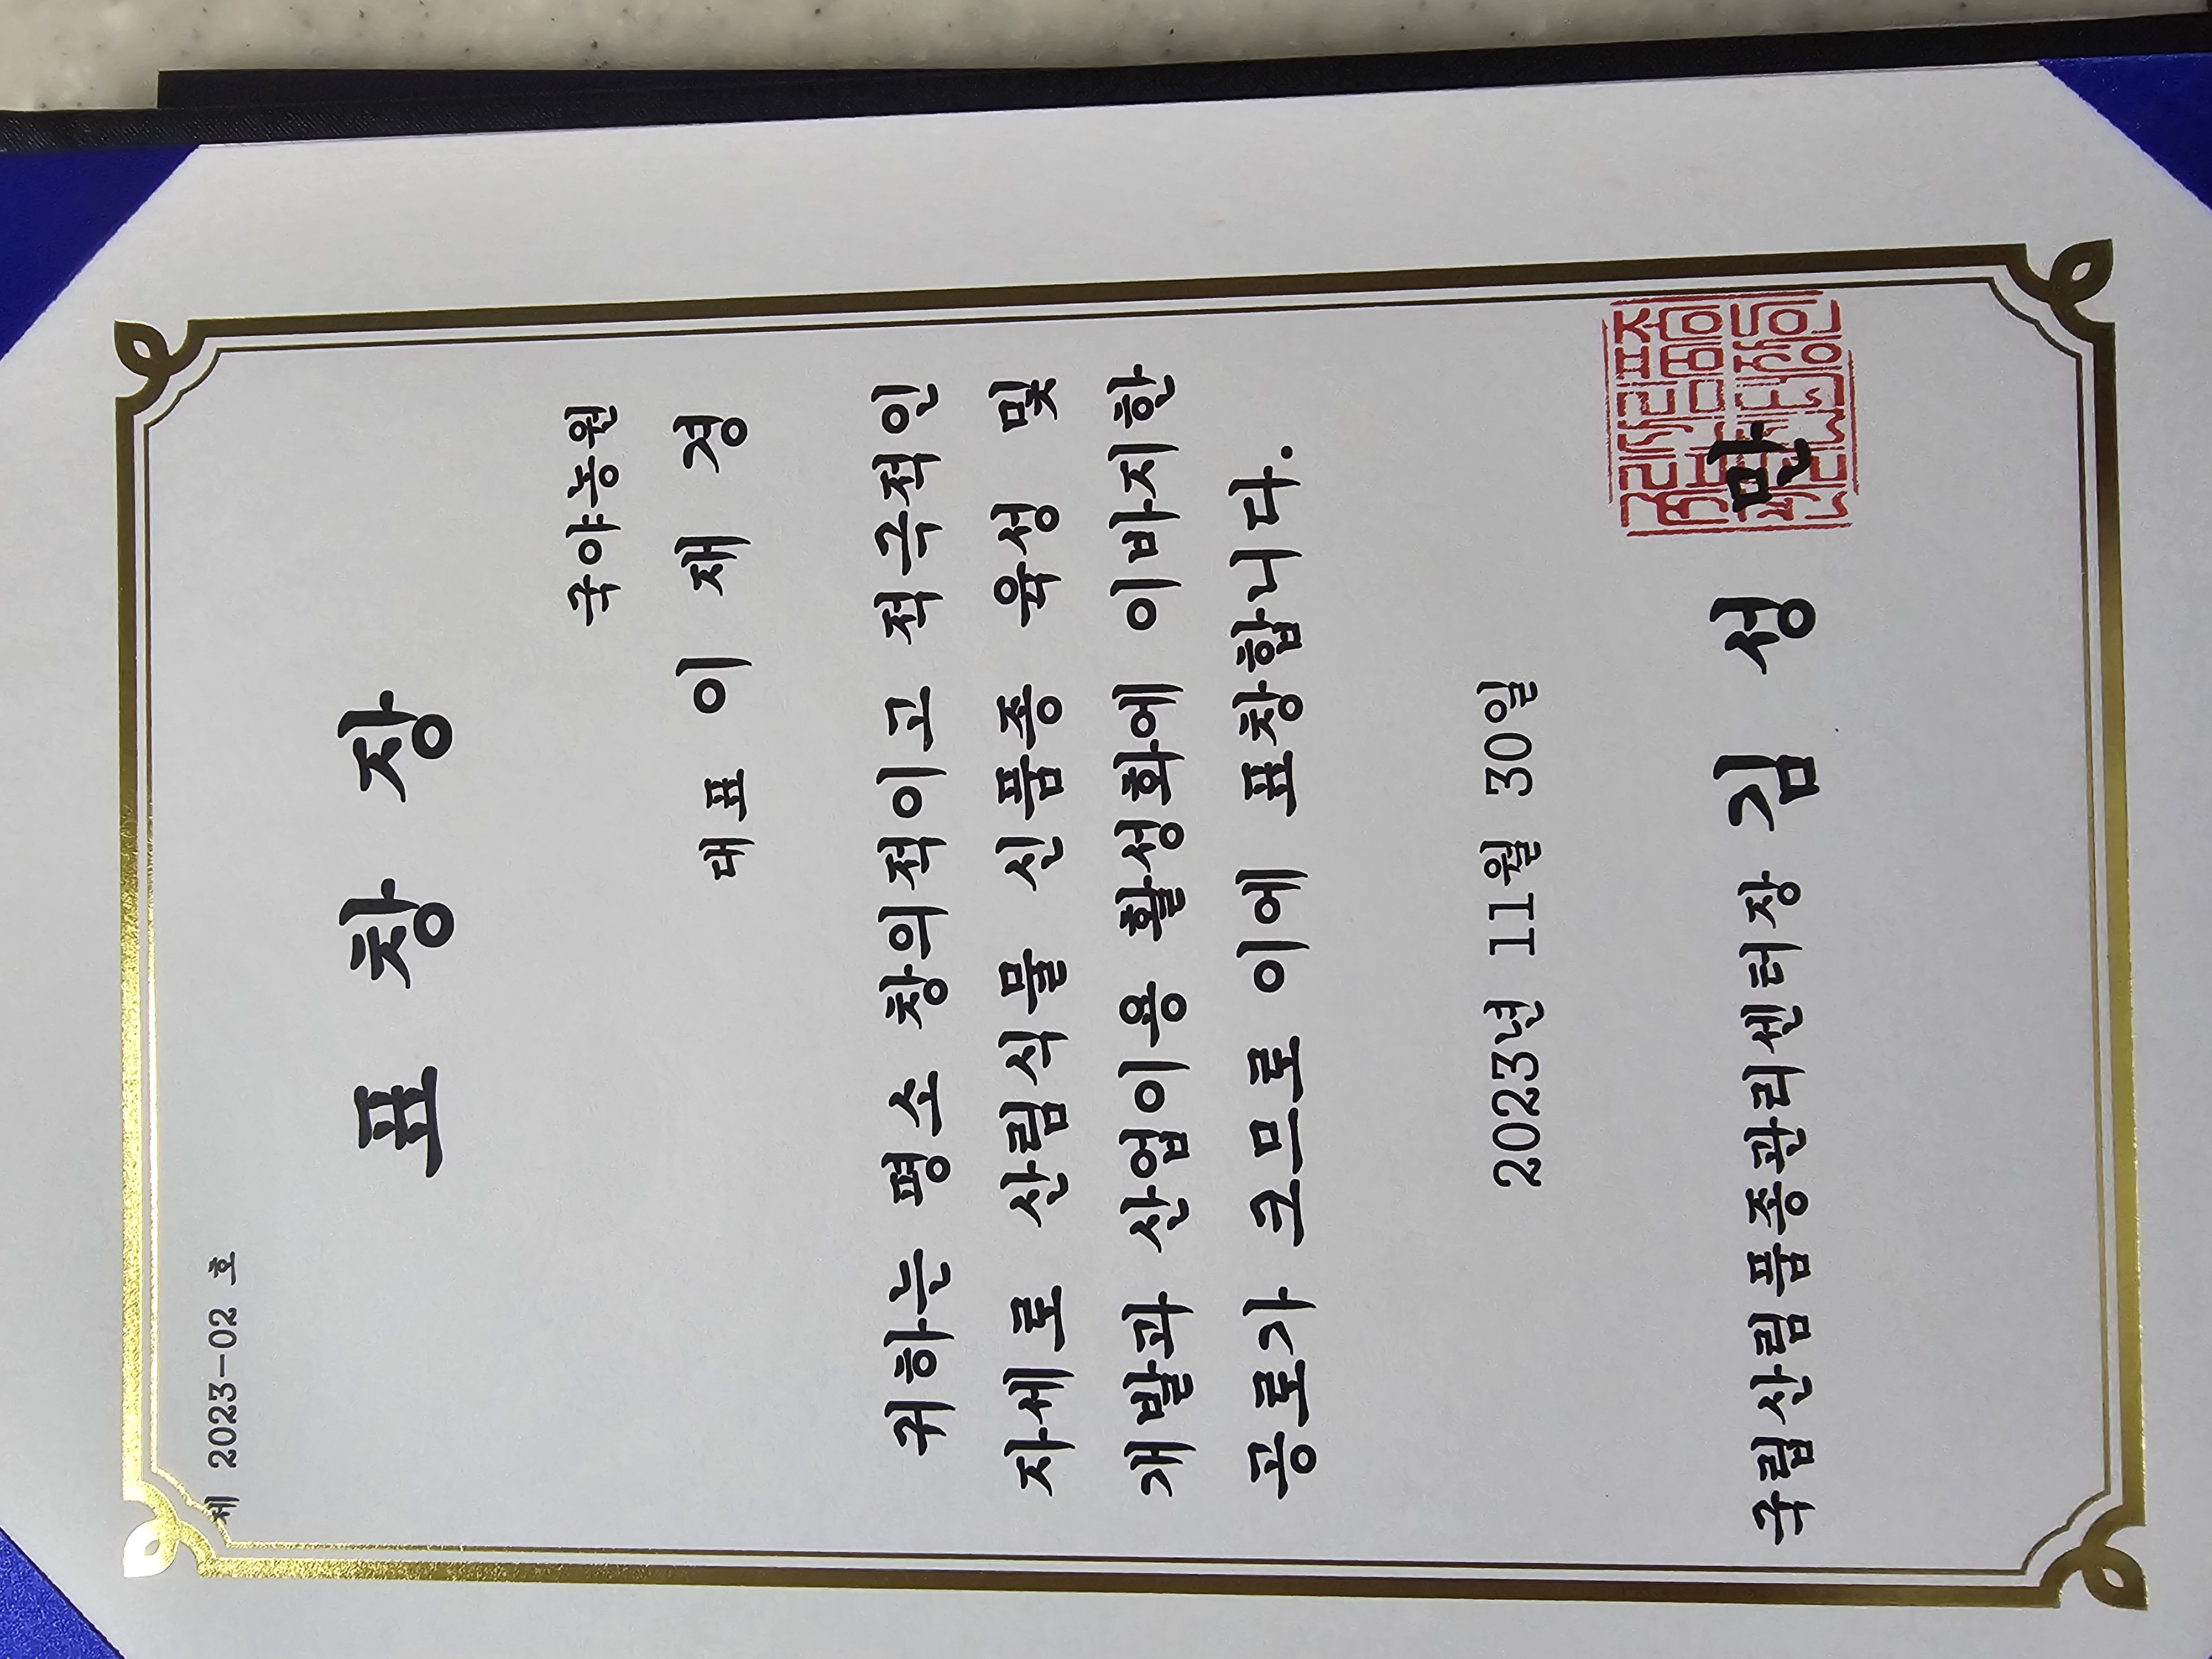 제 2023-02 호
표 창 장
국야농원
대표 이 재 경
귀하는 평소 창의적이고 적극적인
자세로 산림식물 신품종 육성 및
개발과 산업이용 활성화에 이바지한
공로가 크므로 이에 표창합니다.
2023년 11월 30일
국립산림품종관리센터장 김 성 만